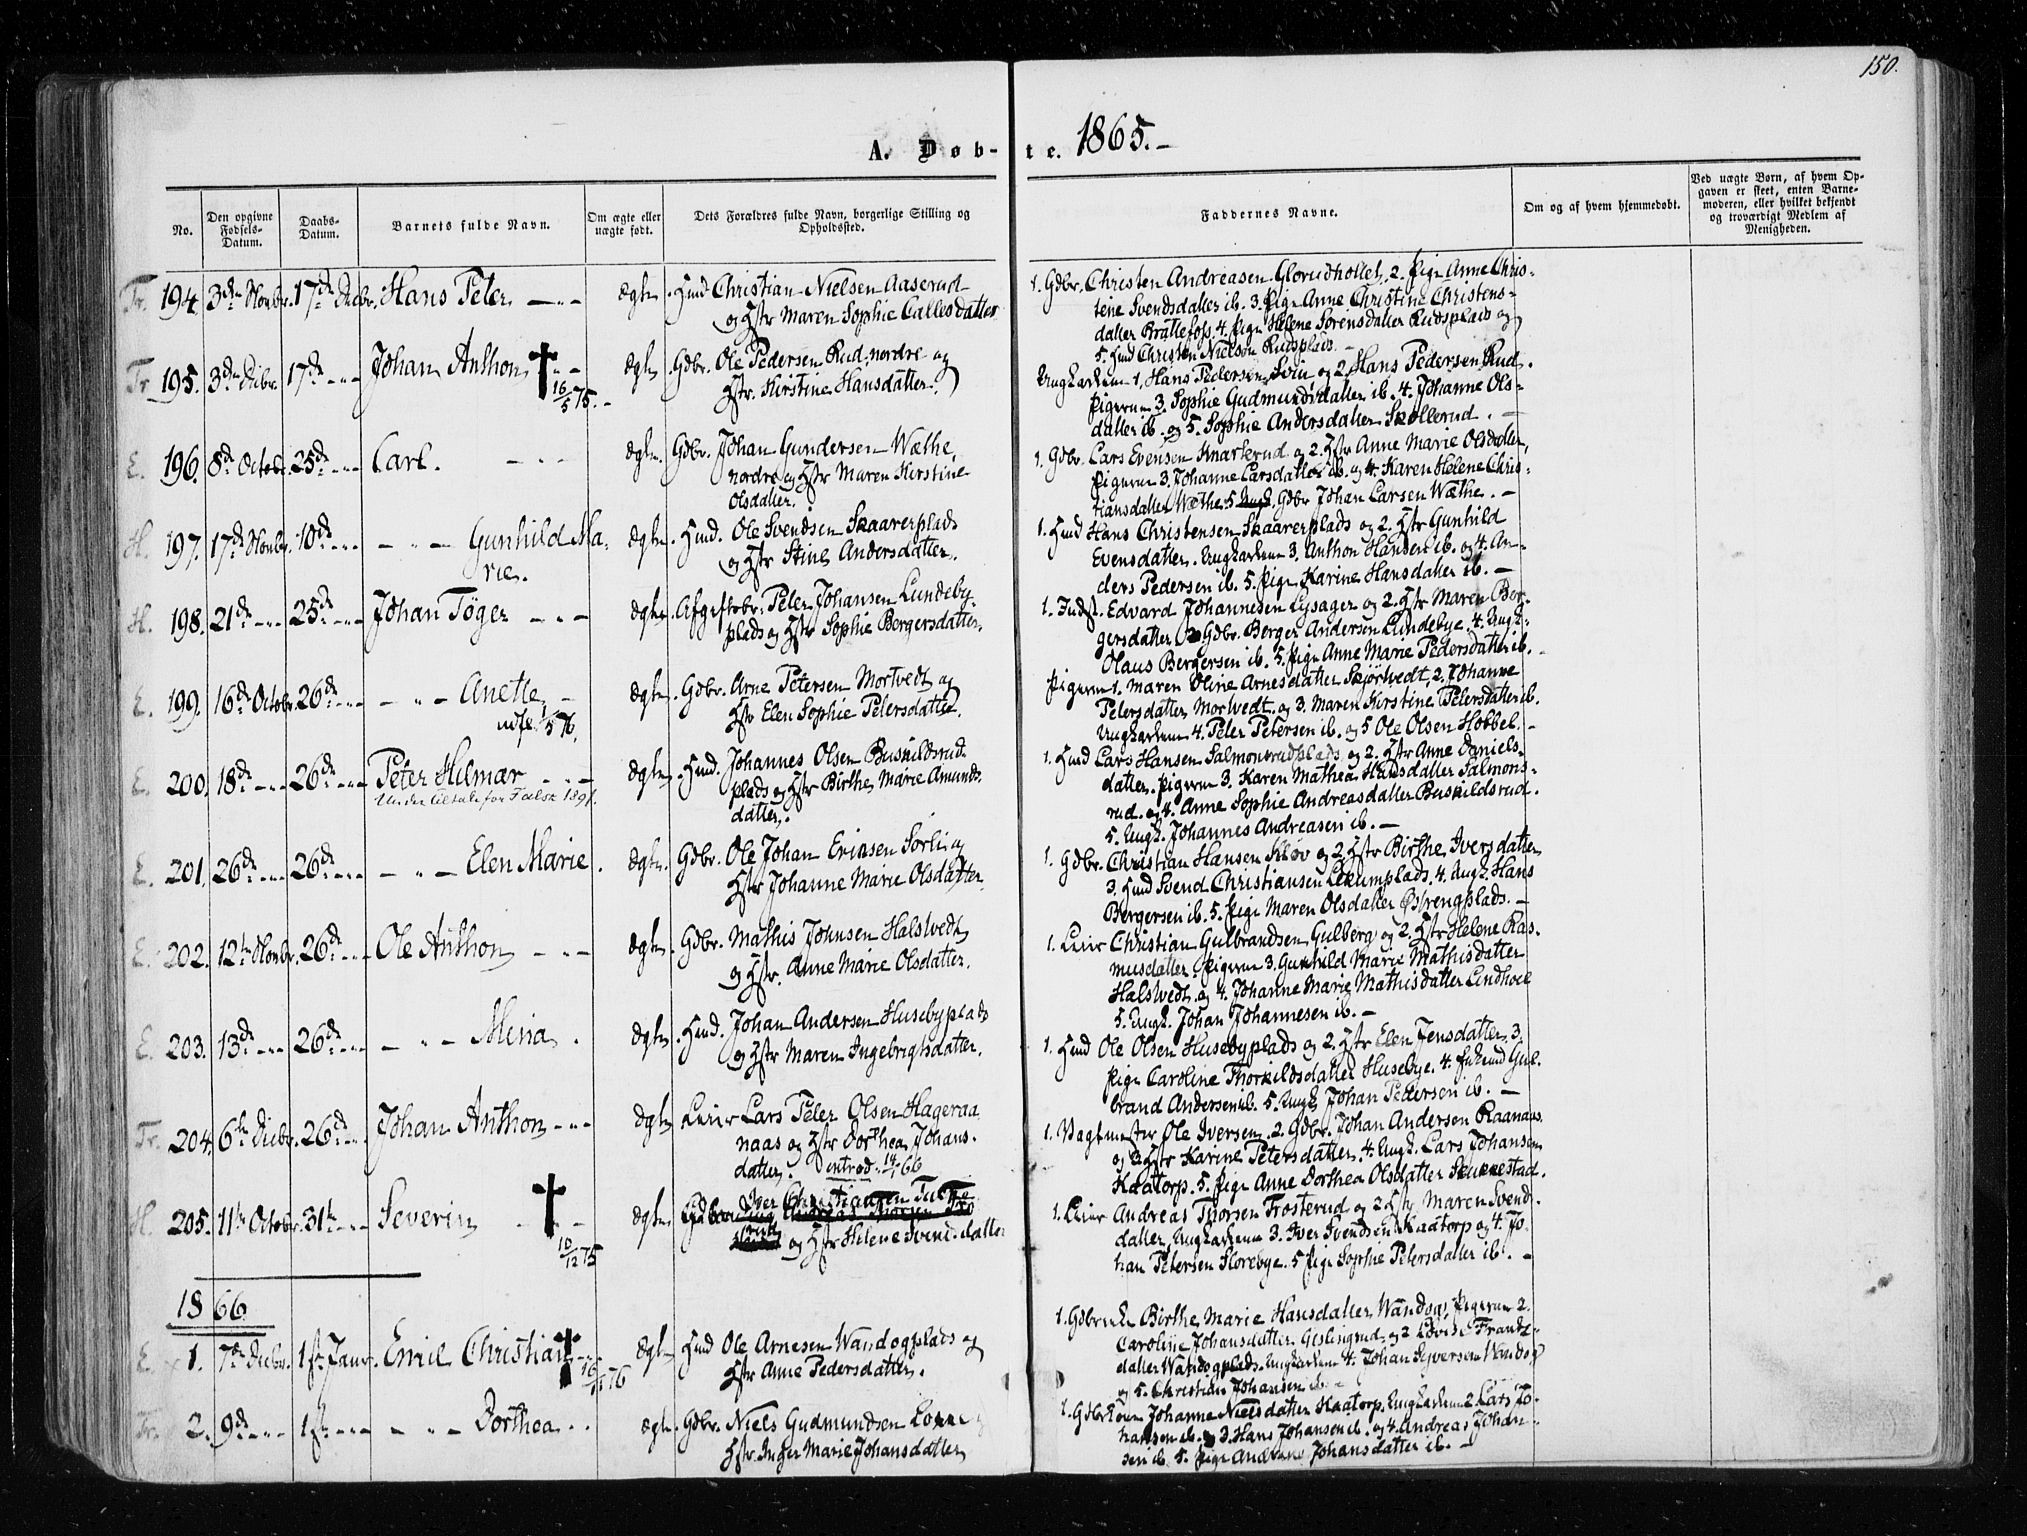 150.
A. Døb-te. 1865.
No.
Den opgivne Fødsels-Datum.
Daabs-Datum.
Barnets fulde Navn.
Om ægte eller uægte født.
Dets Forældres fulde Navn, borgerlige Stilling og Opholdssted.
Faddernes Navne.
Om og af hvem hjemmedøbt.
Ved uægte Børn, af hvem Opgaven er skeet, enten Barnemoderen, eller hvilket bekjendt og troværdigt Medlem af Menigheden.
Tr. 194. 3de Novbr. 17de Decbr. Hans Peter ægte. Hmd. Christian Nielsen Aaserud
og Hstr Maren Sophie Callesdatter
1. Gdbr. Christen Andreasen Glorudhollet, 2. Pige Anne Chris-
tine Svendsdatter ib. 3. Pige Anne Christine Christens-
datter Brattefoss, 4. Pige Helene Sørensdatter Rudsplads og
5. Hmd Christen Nielsen Rudsplads.
Tr. 195. 3de Decbr. 17de Johan Anthon 16/5 75. ægte. Gdbr. Ole Pedersen Rud, nordre og
Hstr. Kirstine Hansdatter.
Ungkarlene 1. Hans Pedersen Svin og 2. Hans Pedersen Rud.
Pigerne 3. Sophie Gudmundsdatter ib. 4. Johanne Ols-
datter ib. og 5. Sophie Andersdatter Skøllerud.
E. 196. 8de Octobr. 25de Carl. ægte. Gdbr. Johan Gundersen Wæthe,
nordre og Hstr Maren Kirstine
Olsdatter.
1. Gdbr. Lars Evensen Knarkerud og 2. Hstr Anne Marie Olsdatter,
Pigerne 3. Johanne Larsdatter ib. og 4. Karen Helene Chris-
tiansdatter Wæthe. 5. Ungk. Gdbr Johan Larsen Wæthe.
H. 197. 17de Novbr. 10de Gunhild Ma-
rie. ægte. Hmd. Ole Svendsen Skaarerplads
og Hstr Stine Andersdatter.
1. Hmd Hans Christensen Skaarerplads og 2. Hstr Gunhild
Evensdatter. Ungkarlene 3. Anthon Hansen ib. og 4. An-
ders Pedersen ib. 5. Pige Karine Hansdatter ib.
H. 198. 21de 25de Johan Tøger ægte. Afgiftsbr. Peter Johansen Lundeby-
plads og Hstr Sophie Bergersdatter.
1. Indst. Edvard Johannesen Lysager og 2. Hstr Maren Ber-
gersdatter 3. Gdbr. Berger Andersen Lundebye. 4. Ungk.
Olaus Bergersen ib. 5. Pige Anne Marie Pedersdatter ib.
E. 199. 16de Octobr. 26de Anette ægte. Gdbr. Arne Petersen Mortvedt og
Hstr Elen Sophie Petersdatter.
Pigerne 1. Maren Oline Arnesdatter Skjørtvedt, 2. Johanne
Petersdatter Mortvedt og 3. Maren Kirstine Petersdatter ib.
Ungkarlene 4. Peter Petersen ib. og 5 Ole Olsen Hobbel.
E. 200. 18de 26de Peter Hilmar ægte. Hmd. Johannes Olsen Buskildsrud-
Under Tiltale for Falsk 1891.
plads og Hstr Birthe Marie Amunds
datter.
1. Hmd Lars Hansen Salmonsrudplads og 2. Hstr Anne Daniels-
datter. Pigerne 3. Karen Mathea Hansdatter Salmons-
rud. og 4. Anne Sophie Andreasdatter Buskildsrud.
5. Ungk. Johannes Andreasen ib.
E. 201. 26de 26de Elen Marie. ægte. Gdbr. Ole Johan Eriksen Sørli og
Hstr Johanne Marie Olsdatter.
1. Gdbr. Christian Hansen Kløv og 2. Hstr Birthe Iversdatter
3. Hmd Svend Christiansen Lekumplads. 4. Ungk. Hans
Bergersen ib. 5. Pige Maren Olsdatter Østrengplads.
E. 202. 12te Novbr. 26de Ole Anthon ægte. Gdbr. Mathis Johnsen Halstvedt
og Hstr. Anne Marie Olsdatter.
1. Leier Christian Gulbrandsen Gulberg og 2. Hstr Helene Ras-
musdatter. Pigerne 3. Gunhild Marie Mathisdatter
Halstvedt og 4. Johanne Marie Mathisdatter Lindhoel
5. Ungk. Johan Johannesen ib.
E. 203. 13de 26de Meria. ægte. Hmd. Johan Andersen Husebyplads
og Hstr Maren Ingebrigtsdatter.
1. Hmd Ole Olsen Husebyplads og 2. Hstr Elen Jensdatter. 3.
Pige Caroline Thorkildsdatter Husebye. 4. Enkemd Gul-
brand Andersen ib. 5. Ungk Johan Pedersen ib.
Tr. 204. 6te Decbr. 26de Johan Anthon ægte. Leier Lars Peter Olsen Hageraa
naas og Hstr Dorthea Johans-
datter. introd. 14/1 66
1. Vagtmester Ole Iversen. 2. Gdbr. Johan Andersen Raanaas
og 3. Hstr Karine Petersdatter. 4. Ungk. Lars Johansen
Kaatorp. 5. Pige Anne Dorthea Olsdatter Skukkestad.
H. 205. 11te Octobr. 31te Severin 10/12 75 ægte. Iver Christiansen
og Hstr Helene Svendsdatter
1. Leier Andreas Thorsen Trosterud og 2. Hstr Maren Svends-
datter, Ungkarlene 3. Iver Svendsen Kaatorp og 4. Jo-
han Petersen Slorebye. 5 Pige Sophie Petersdatter ib.
1866.
E. 1. 7de Decbr. 1ste Janr. Emil Christian ægte. Hmd Ole Arnesen Wandogplads og
Hstr Anne Pedersdatter.
1. Gdbrenke Birthe Marie Hansdatter Wandog, Pigerne 2.
Caroline Johansdatter Geslingrud og 2 Lovise Frantz-
datter Wandogplads. Ungkarlene 4. Johan Syversen Wandog
og 5. Christian Johansen ib.
Tr. 2. 9de 1ste Dorthea. ægte. Gdbr. Niels Gudmundsen Lonne og
Hstr. Inger Marie Johansdatter
1. Gdbrkone Johanne Nielsdatter Kaatorp. Ungkarlene 2. Lars Jo-
hansen ib. og 3. Hans Johansen ib. og 4. Andreas Johan-
sen ib. 5. Pige Andrine Johansdatter ib.